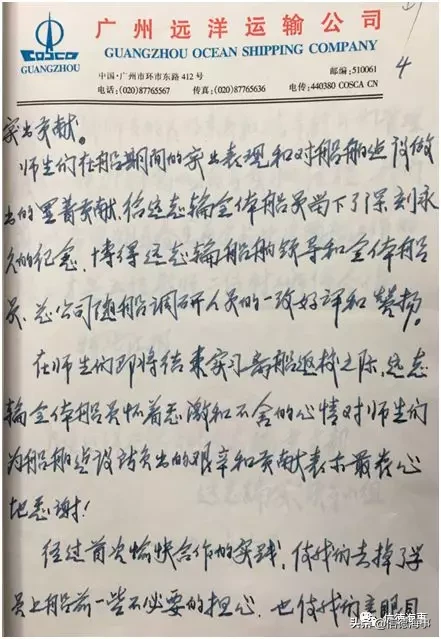 COSCO
GUANGZHOU
广州远洋运输公司
GUANGZHOU OCEAN SHIPPING COMPANY
中国·广州市环市东路 412 号
邮编:510061
电话:(020)87765567
传真:(020)87765636
电传:440380 COSCA CN
4
突出贡献。
师生们在船期间的突出表现和对船舶建设做
出的显著贡献,给远志轮全体船员留下了深刻永
久的纪念,博得远志轮船舶领导和全体船
员、总公司随船调研人员的一致好评和赞扬。
在师生们即将结束实习离船返校之际,远志
轮全体船员怀着感激和不舍的心情对师生们
为船舶建设所付出的艰辛和贡献表示最衷心
地感谢!
经过首次愉快合作的实践,使我们去掉了学
员上船前一些不必要的担心,也使我们亲眼目
头条@信德海事
信德海事